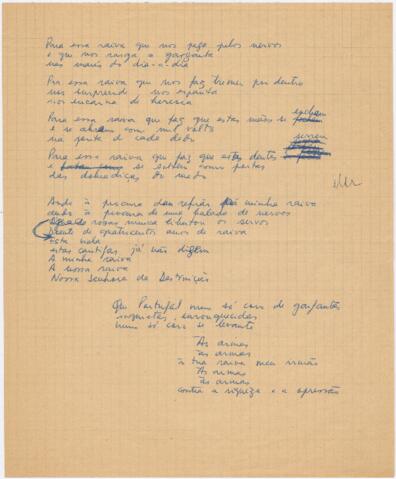 Para essa raiva que nos pega pelos nervos
e que nos rasga a garganta
nas marés do dia-a-dia
Pra essa raiva que nos faz tremer por dentro
nos surpreende nos espanta
nos encarna de heresia
Para essa raiva que faz que estas mãos se fechem
e se abram com mil volts
na ponta de cada dedo
Para essa raiva que faz que estes dentes cerrem
e se soltem como portas
das dobradiças do medo
Ando à procura dum refrão pra minha raiva
ando à procura de uma balada de nervos
rosas nunca
Diante de quatrocentos anos de raiva
Esta
estas cantigas já não digam
A minha raiva
A nossa raiva
Nossa Senhora da Destruição
Que Portugal num só coro de gargantas
enrouquecidas
num só coro se levante
Às armas
às armas
à tua raiva meu irmão
Às armas
às armas
contra a riqueza e a opressão